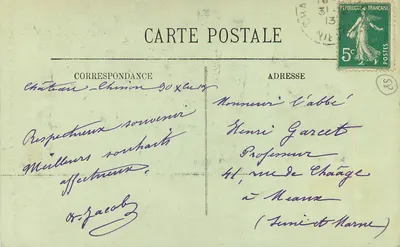 CARTE POSTALE
RÉPUBLIQUE FRANÇAISE
5c
POSTES
31
13
CORRESPONDANCE
Château-Chinon 30 X
Respectueux souvenir
Meilleurs souhaits
affectueux.
Jacob
ADRESSE
Monsieur l'abbé
Henri Garcet
Professeur
41, rue de Chaage
à Meaux
(Seine et Marne)